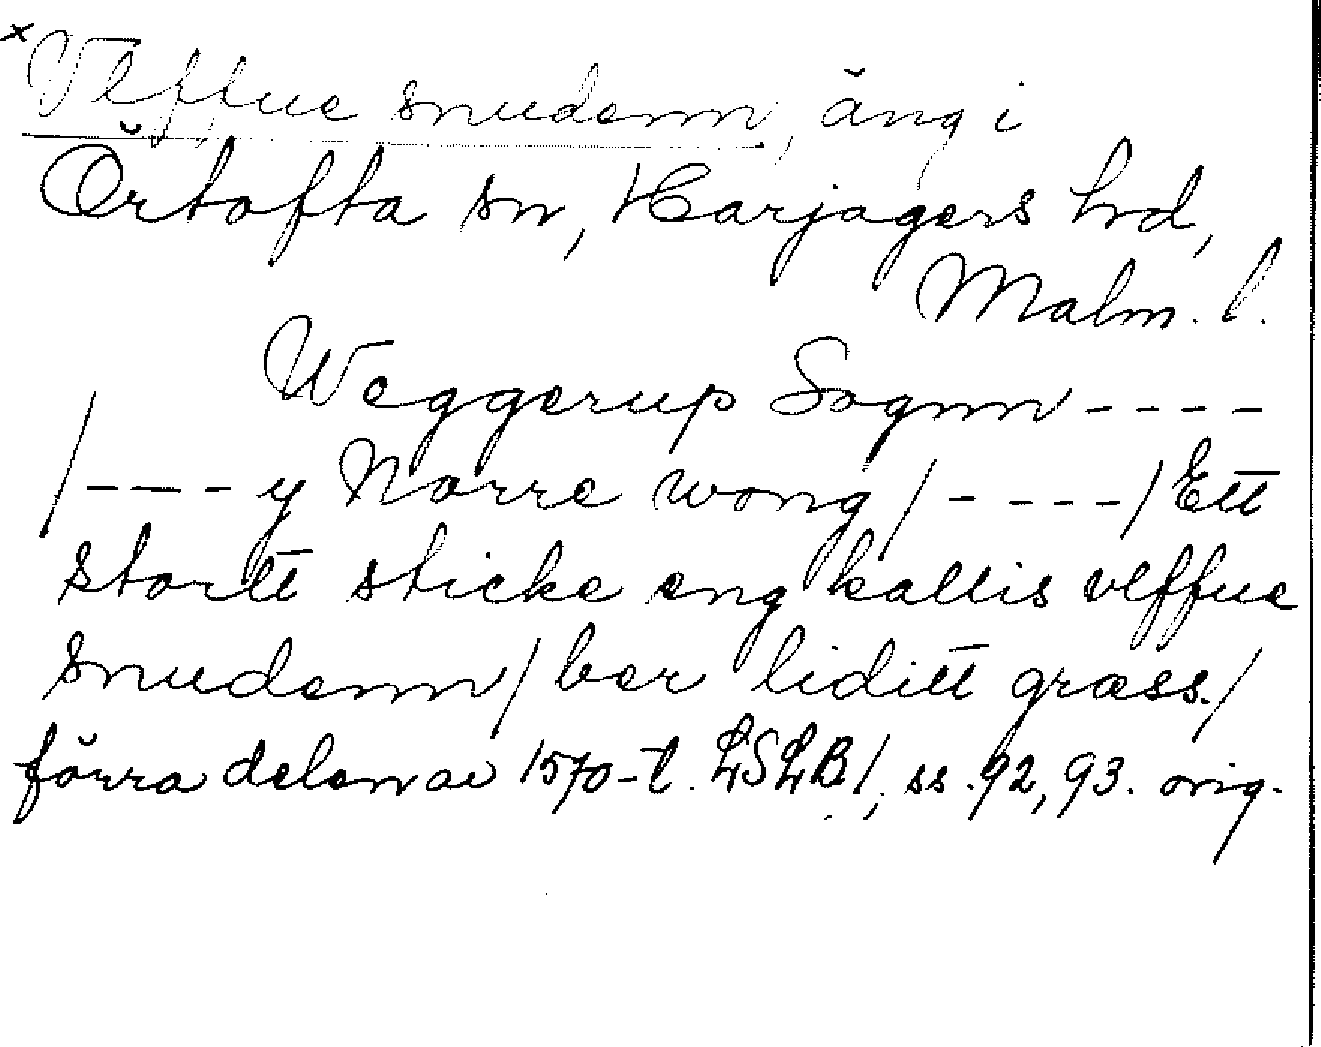 x Vleffue snudenn, äng i
Örtofta sn, Harjagers hrd,
Malm. l.
Weggerup Sognn ----
/----y Norre wong/-----/Ett
stortt sticke eng kallis vlffue
snudenn/ber liditt græss./
förra delen av 1570-t. LSLB1, ss. 92, 93. orig.